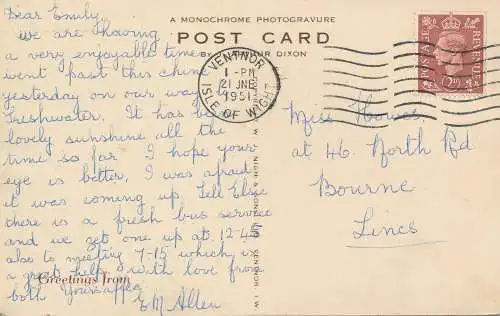 Dear Emily,
we are having
a very enjoyable time
went past this chine
yesterday on our way to
Freshwater. It has been
lovely sunshine all the
time so far I hope your
eye is better. I was afraid
it was coming up. Tell Elsie
there is a fresh bus service
and we get one up at 12-45
also to meeting 7-15 which is
a great help with love from
both Yours aff
EM Allen
Greetings from
A MONOCHROME PHOTOGRAVURE
POST CARD
BY J. ARTHUR DIXON
VENTNOR
1 - PM
21 JNE
1951
ISLE OF WIGHT
POSTAGE
REVENUE
2D
Miss Howes
at 46 North Rd
Bourne
Lincs